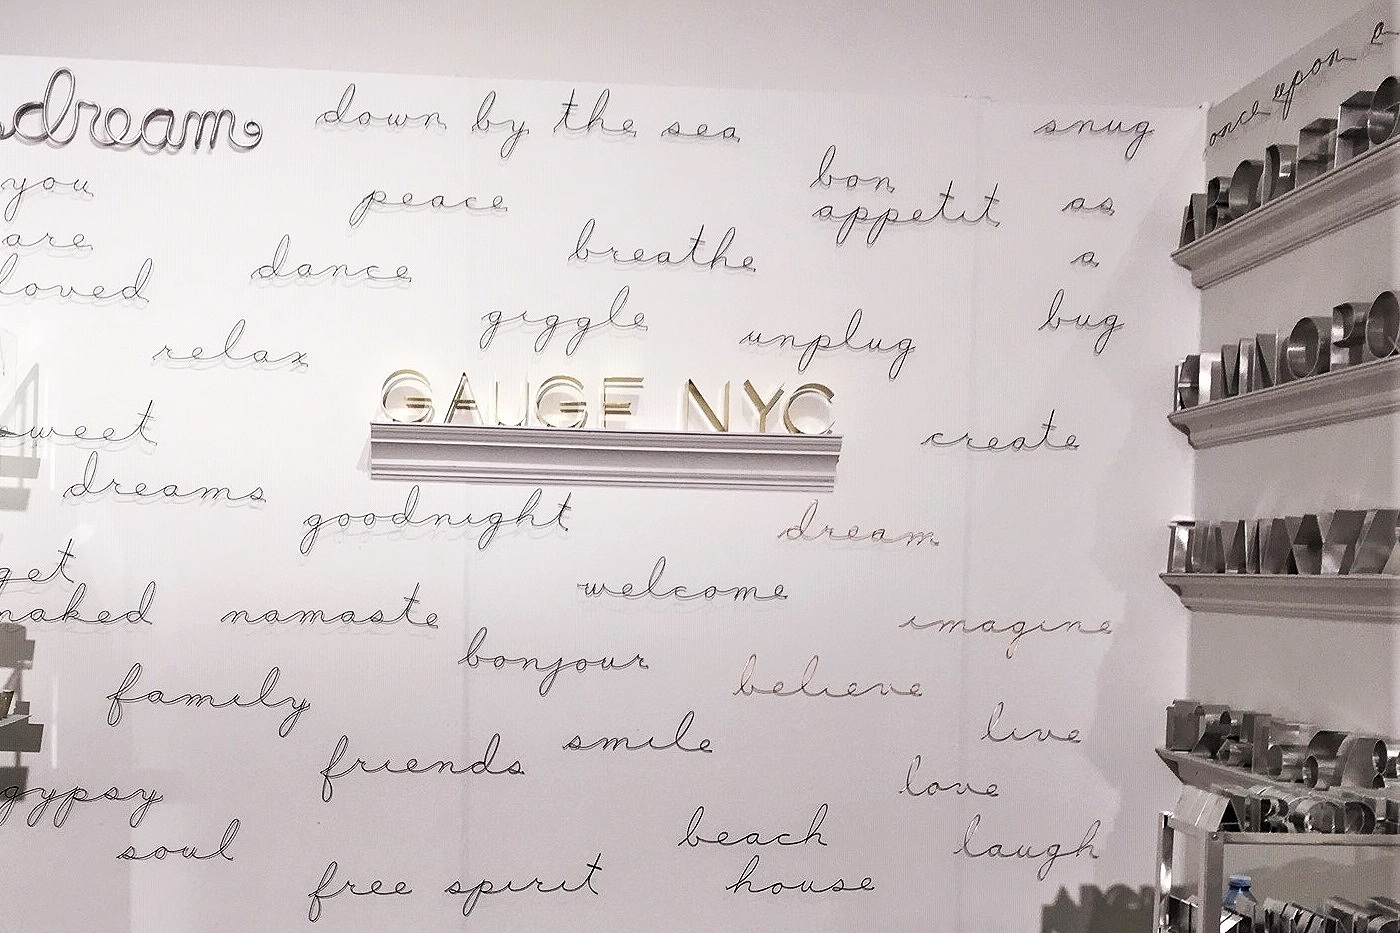 dream
down by the sea
snug
as
a
bug
once upon a
you
are
loved
peace
bon
appetit
breathe
dance
giggle
unplug
relax
GAUGE NYC
sweet
dreams
create
goodnight
dream
get
naked
namaste
welcome
imagine
bonjour
believe
family
smile
live
friends
love
laugh
gypsy
soul
beach
house
free spirit